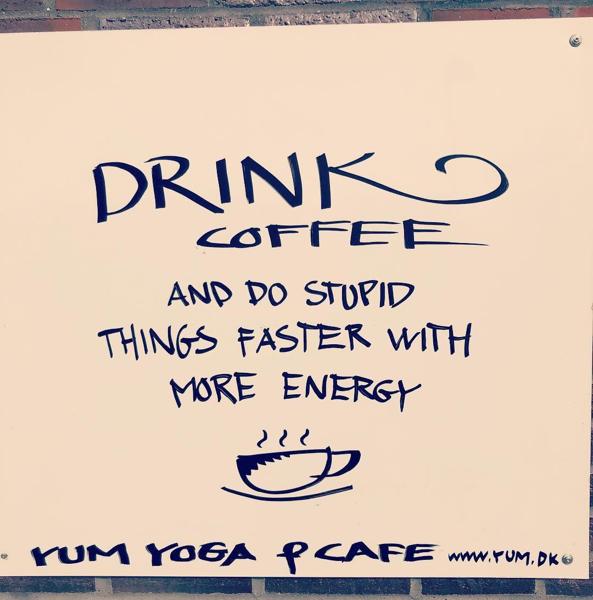 DRINK
COFFEE
AND DO STUPID
THINGS FASTER WITH
MORE ENERGY
YUM YOGA & CAFE www.YUM.DK